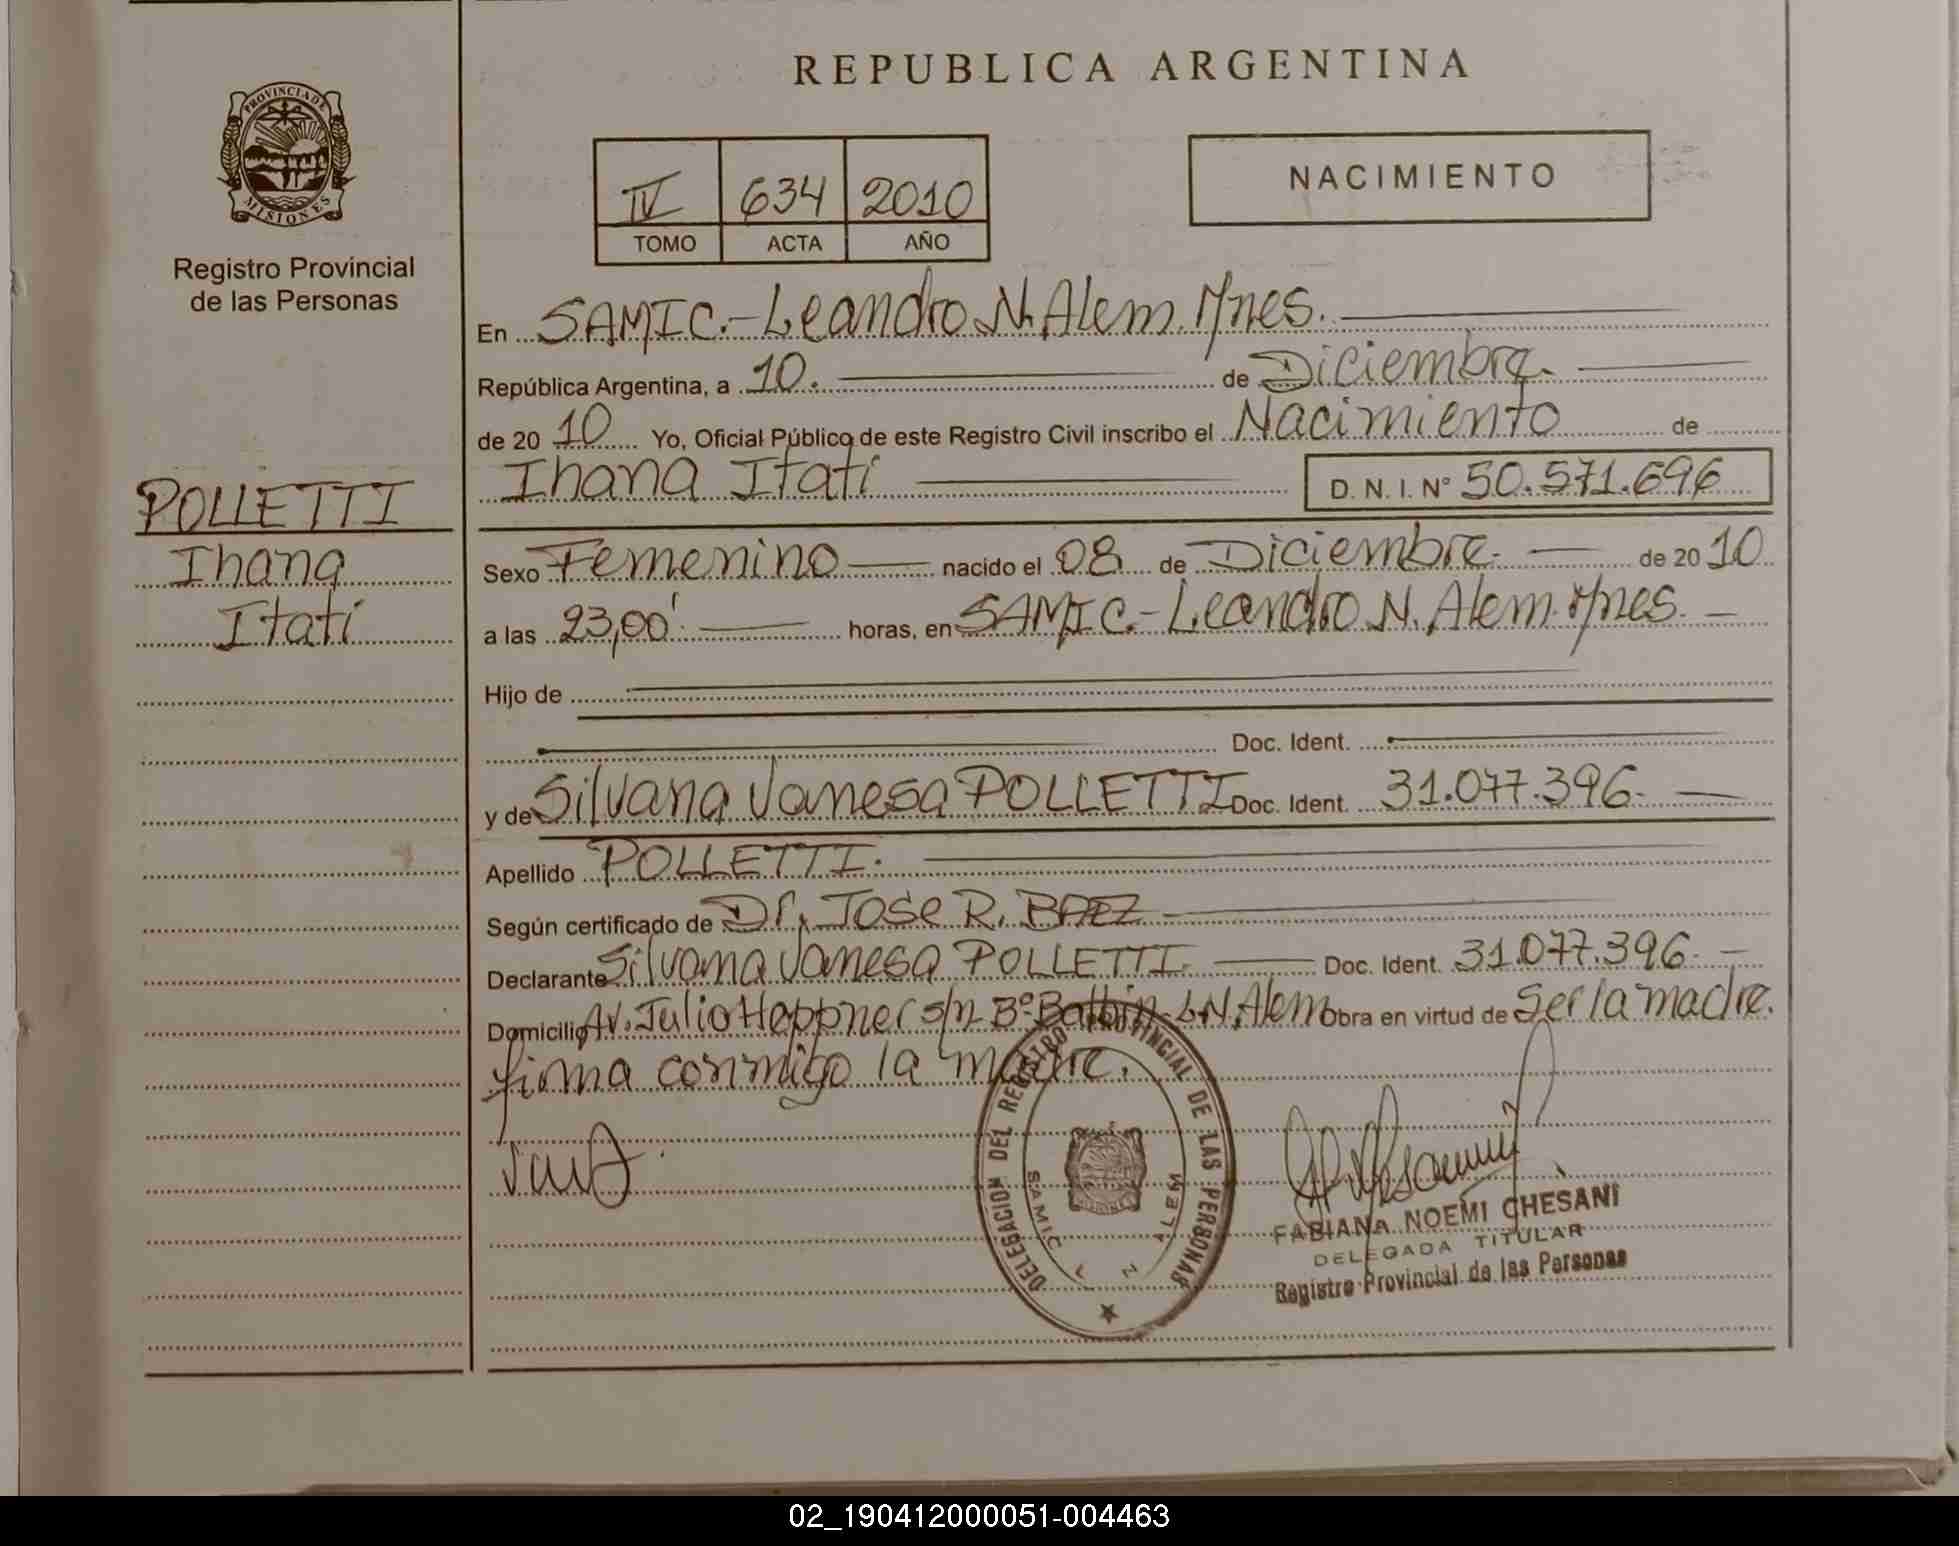 REPUBLICA ARGENTINA
PROVINCIA DE
MISIONES
Registro Provincial
de las Personas
IV 634 2010
TOMO ACTA AÑO
NACIMIENTO
En SAMIC.- Leandro N. Alem Mnes.
República Argentina, a 10. de Diciembre.
de 20 10 Yo, Oficial Público de este Registro Civil inscribo el Nacimiento de
Ihana Itati D. N. I. Nº 50.571.696
POLLETTI
Ihana
Itati
Sexo Femenino nacido el 08 de Diciembre. de 20 10
a las 23,00' horas, en SAMIC.- Leandro N. Alem Mnes.
Hijo de
Doc. Ident.
y de Silvana Vanesa POLLETTI Doc. Ident. 31.077.396.
Apellido POLLETTI.
Según certificado de Dr. Jose R. BAEZ
Declarante Silvana Vanesa POLLETTI. Doc. Ident. 31.077.396.
Domicilio Av. Julio Heppner s/n Bº Balbin L.N. Alem Obra en virtud de Ser la madre.
firma conmigo la madre.
DELEGACION DEL REGISTRO PROVINCIAL DE LAS PERSONAS
SAMIC L N ALEM
MISIONES
FABIANA NOEMI CHESANI
DELEGADA TITULAR
Registro Provincial de las Personas
02_190412000051-004463